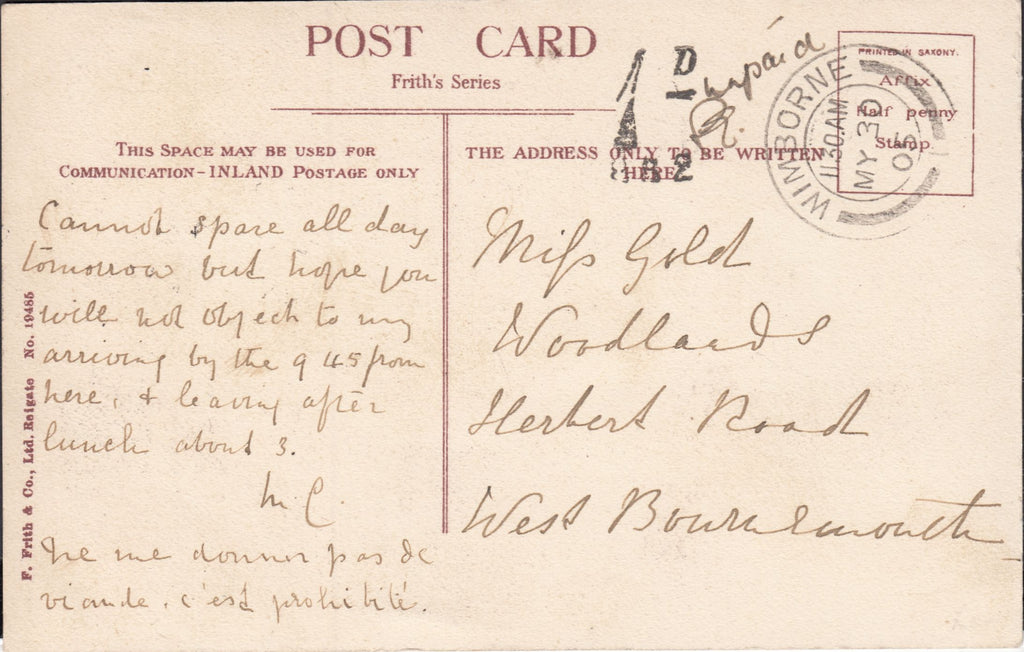 POST CARD
Frith's Series
THIS SPACE MAY BE USED FOR
COMMUNICATION-INLAND POSTAGE ONLY
THE ADDRESS ONLY TO BE WRITTEN
HERE
1D
unpaid
PRINTED IN SAXONY.
Affix
Half penny
Stamp.
WIMBORNE
11.30AM
MY 30
05
Cannot spare all day
tomorrow but hope you
will not object to my
arriving by the 9 45 from
here, & leaving after
lunch about 3.
M C.
Ne me donner pas de
viande, c'est prohibité.
Miss Gold
Woodlands
Herbert Road
West Bournemouth
F. Frith & Co., Ltd. Reigate No. 19485